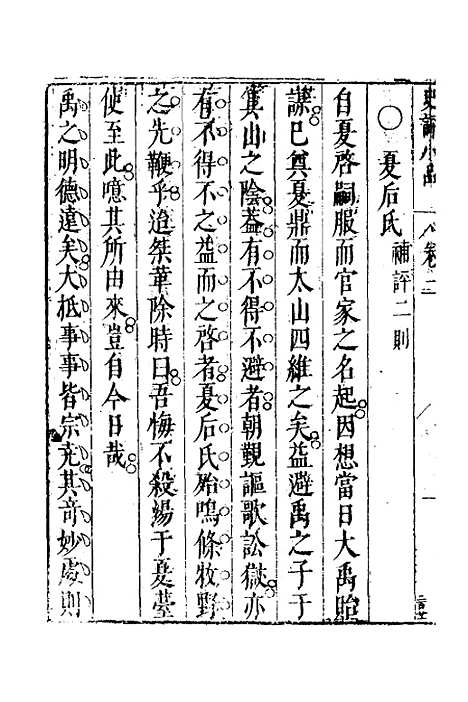 史詮小品　卷二　一
○夏后氏　補評二則
自夏啓嗣服而官家之名起因想當日大禹貽
謀已奠夏鼎而太山四維之矣益避禹之子于
箕山之陰葢有不得不避者朝覲謳歌訟獄亦
有不得不之益而之啓者夏后氏殆鳴條牧野
之先鞭乎迨桀華除時曰吾悔不殺湯于夏臺
使至此噫其所由來豈自今日哉
禹之明德遠矣大抵事事皆宗堯其奇妙處則